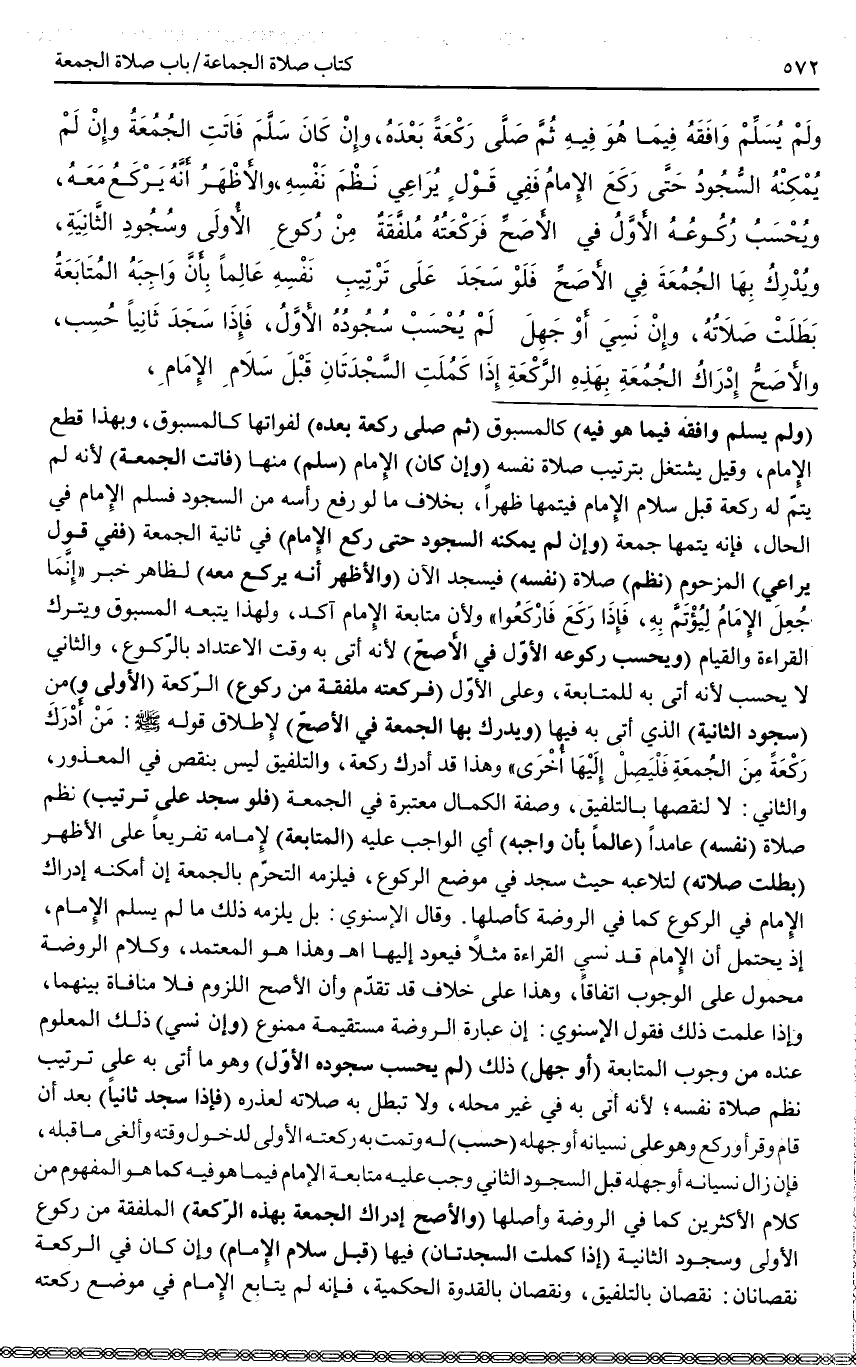 ٥٧٢ كتاب صلاة الجماعة/ باب صلاة الجمعة
ولَمْ يُسَلِّمْ وَافَقَهُ فِيمَا هُوَ فِيهِ ثُمَّ صَلَّى رَكْعَةً بَعْدَهُ، وإِنْ كَانَ سَلَّمَ فَاتَتِ الجُمُعَةُ وإِنْ لَمْ
يُمْكِنْهُ السُّجُودُ حَتَّى رَكَعَ الإِمامُ فَفِي قَوْلٍ يُرَاعِي نَظْمَ نَفْسِهِ، والأَظْهَرُ أَنَّهُ يَرْكَعُ مَعَهُ،
ويُحْسَبُ رُكُوعُهُ الأَوَّلُ في الأَصَحِّ فَرَكْعَتُهُ مُلفَّقَةٌ مِنْ رُكوعِ الأُولَى وسُجُودِ الثَّانِيَةِ،
ويُدْرِكُ بِهَا الجُمُعَةَ فِي الأَصَحِّ فَلَوْ سَجَدَ عَلَى تَرْتِيبِ نَفْسِهِ عَالِماً بِأَنَّ وَاجِبَهُ المُتَابَعَةُ
بَطَلَتْ صَلَاتُهُ، وإِنْ نَسِيَ أَوْ جَهِلَ لَمْ يُحْسَبْ سُجُودُهُ الأَوَّلُ، فَإِذَا سَجَدَ ثَانِياً حُسِب،
والأَصَحُّ إِدْرَاكُ الجُمُعَةِ بِهَذِهِ الرَّكْعَةِ إِذَا كَمُلَتِ السَّجْدَتَانِ قَبْلَ سَلَامِ الإِمَامِ،
(ولم يسلم وافقه فيما هو فيه) كالمسبوق (ثم صلى ركعة بعده) لفواتها كالمسبوق، وبهذا قطع
الإمام، وقيل يشتغل بترتيب صلاة نفسه (وإن كان) الإمام (سلم) منها (فاتت الجمعة) لأنه لم
يتمّ له ركعة قبل سلام الإمام فيتمها ظهراً، بخلاف ما لو رفع رأسه من السجود فسلم الإمام في
الحال، فإنه يتمها جمعة (وإن لم يمكنه السجود حتى ركع الإمام) في ثانية الجمعة (ففي قول
يراعي) المزحوم (نظم) صلاة (نفسه) فيسجد الآن (والأظهر أنه يركع معه) لظاهر خبر «إِنَّمَا
جُعِلَ الإِمَامُ لِيُؤْتَمَّ بِهِ، فَإِذَا رَكَعَ فَارْكَعُوا» ولأن متابعة الإمام آكد، ولهذا يتبعه المسبوق ويترك
القراءة والقيام (ويحسب ركوعه الأوّل في الأصحّ) لأنه أتى به وقت الاعتداد بالرّكوع، والثاني
لا يحسب لأنه أتى به للمتابعة، وعلى الأوّل (فركعته ملفقة من ركوع) الركعة (الأولى و)من
(سجود الثانية) الذي أتى به فيها (ويدرك بها الجمعة في الأصحّ) لإطلاق قوله ﷺ: مَنْ أَدْرَكَ
رَكْعَةً مِنَ الجُمعَةِ فَلْيَصِلْ إِلَيْهَا أُخْرَى» وهذا قد أدرك ركعة، والتلفيق ليس بنقص في المعذور،
والثاني: لا لنقصها بالتلفيق، وصفة الكمال معتبرة في الجمعة (فلو سجد على ترتيب) نظم
صلاة (نفسه) عامداً (عالماً بأن واجبه) أي الواجب عليه (المتابعة) لإمامه تفريعاً على الأظهر
(بطلت صلاته) لتلاعبه حيث سجد في موضع الركوع، فيلزمه التحرّم بالجمعة إن أمكنه إدراك
الإمام في الركوع كما في الروضة كأصلها. وقال الإسنوي: بل يلزمه ذلك ما لم يسلم الإمام،
إذ يحتمل أن الإمام قد نسي القراءة مثلاً فيعود إليها اهـ وهذا هو المعتمد، وكلام الروضة
محمول على الوجوب اتفاقاً، وهذا على خلاف قد تقدّم وأن الأصح اللزوم فلا منافاة بينهما،
وإذا علمت ذلك فقول الإسنوي: إن عبارة الروضة مستقيمة ممنوع (وإن نسي) ذلك المعلوم
عنده من وجوب المتابعة (أو جهل) ذلك (لم يحسب سجوده الأوّل) وهو ما أتى به على ترتيب
نظم صلاة نفسه؛ لأنه أتى به في غير محله، ولا تبطل به صلاته لعذره (فإذا سجد ثانياً) بعد أن
قام وقرأ وركع وهو على نسيانه أو جهله (حسب) له وتمت به ركعته الأولى لدخول وقته وألغى ما قبله،
فإن زال نسيانه أو جهله قبل السجود الثاني وجب عليه متابعة الإمام فيما هو فيه كما هو المفهوم من
كلام الأكثرين كما في الروضة وأصلها (والأصح إدراك الجمعة بهذه الرّكعة) الملفقة من ركوع
الأولى وسجود الثانية (إذا كملت السجدتان) فيها (قبل سلام الإمام) وإن كان في الركعة
نقصانان: نقصان بالتلفيق، ونقصان بالقدوة الحكمية، فإنه لم يتابع الإمام في موضع ركعته